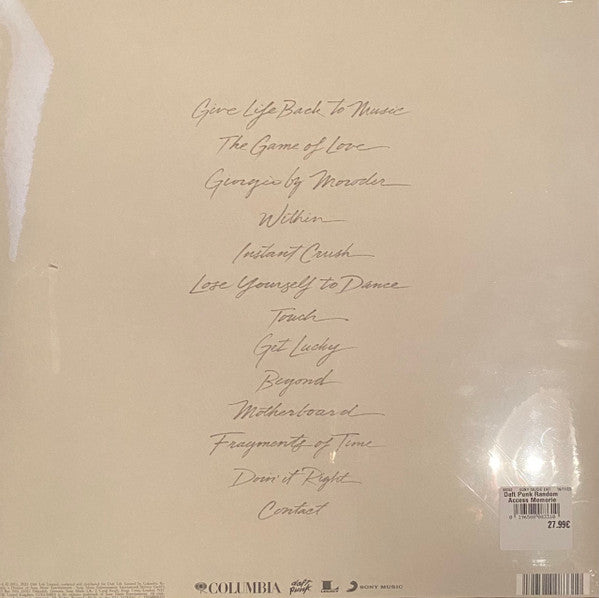 Give Life Back to Music
The Game of Love
Giorgio by Moroder
Within
Instant Crush
Lose Yourself to Dance
Touch
Get Lucky
Beyond
Motherboard
Fragments of Time
Doin' it Right
Contact
Daft Punk Random
Access Memorie
27.99€
COLUMBIA
daft punk
SONY MUSIC